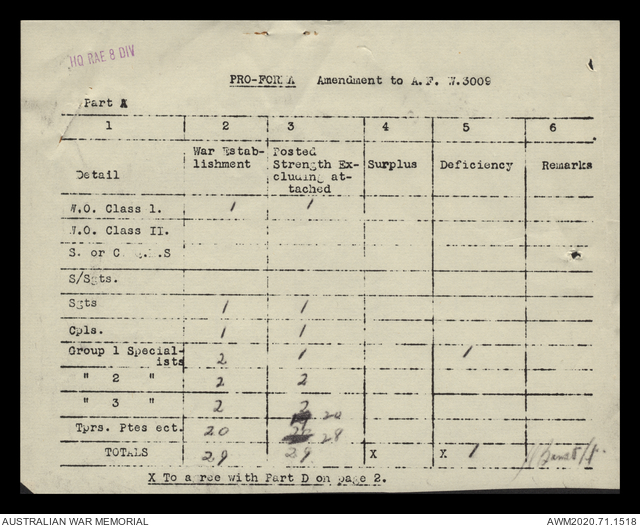 HQ RAE 8 DIV
PRO-FORMA Amendment to A.F. W.3009
Part A
1 2 3 4 5 6
Detail War Estab-lishment Posted Strength Ex-cluding at-tached Surplus Deficiency Remarks
W.O. Class 1. 1 1
W.O. Class II.
S. or C.Q.M.S
S/Sgts.
Sgts 1 1
Cpls. 1 1
Group 1 Special-ists 2 1 1
" 2 " 2 2
" 3 " 2 2
Tprs. Ptes ect. 20 20 28
TOTALS 29 29 X X 1
X To a ree with Part D on page 2.
AUSTRALIAN WAR MEMORIAL AWM2020.71.1518